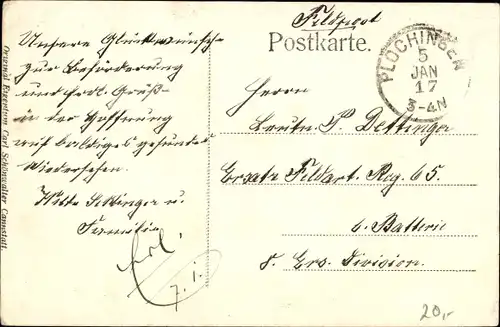 Feldpost
Postkarte.
PLOCHINGEN
5
JAN
17
3-4N
Unsere Glückwünsche
zur Beförderung
und frdl. Grüß-
in der Hoffnung
auf baldiges gesundes
Wiedersehen.
Familie
Herrn
Leutn. P. Dettinger
Ersatz Feldart. Reg 65.
6. Batterie
8. Ers. Division.
erl.
7.1.
20,-
Original Eigentum Carl Schönwalter Cannstatt.